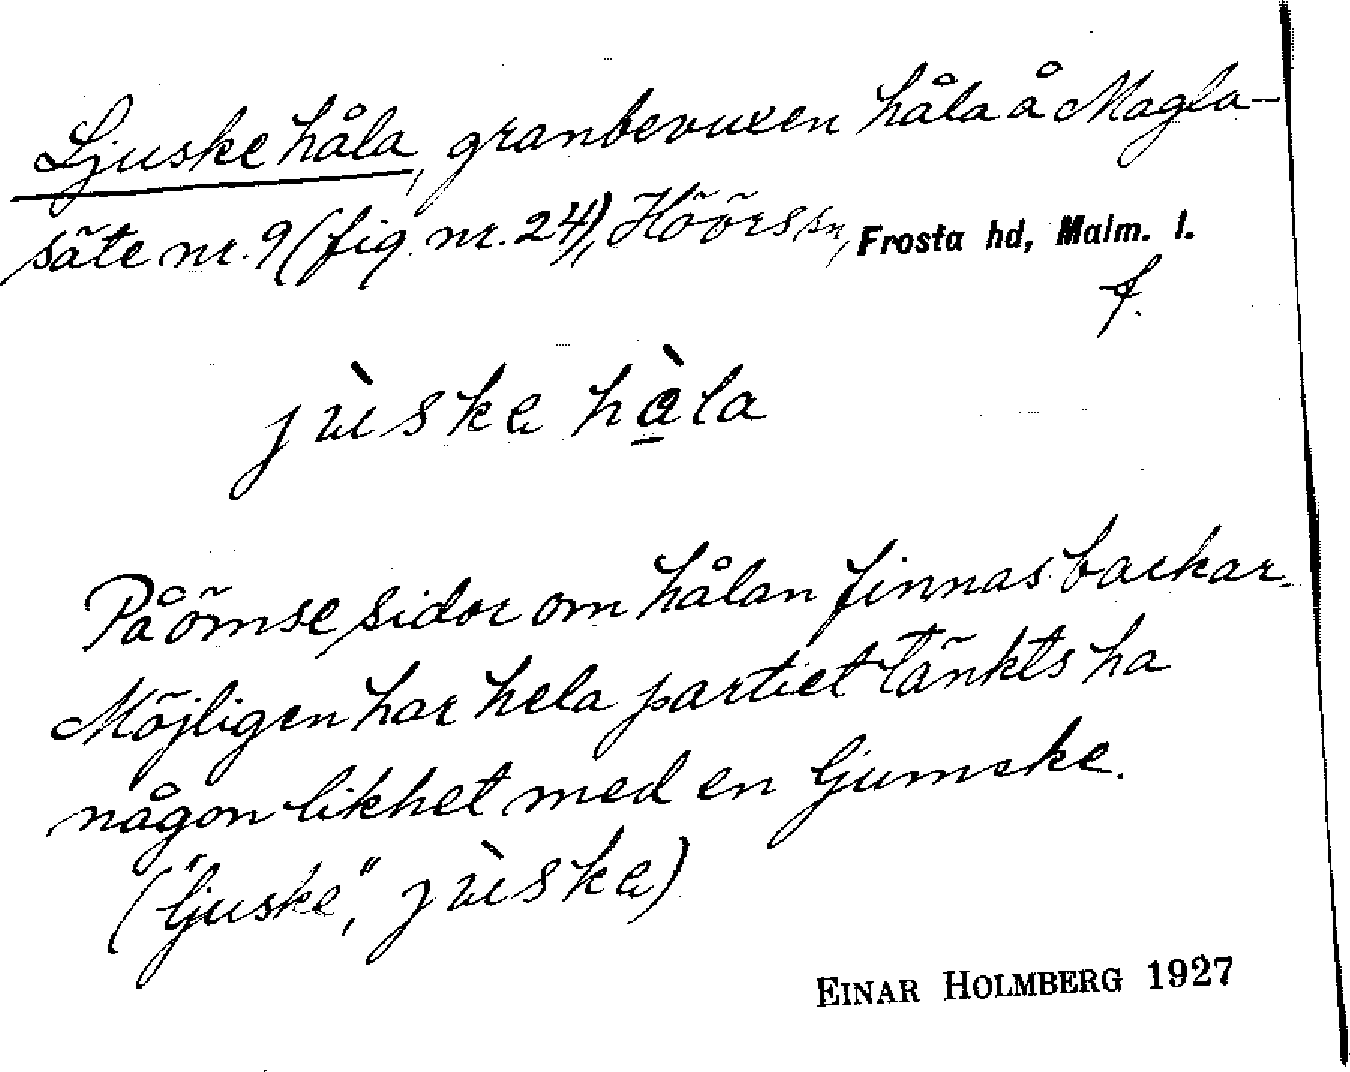 Ljuske håla, granbevuxen håla å Magla-
säte nr. 9 (fig. nr. 24), Höörs sn, Frosta hd, Malm. l.
f.
jùske hàla
På ömse sidor om hålan finnas backar.
Möjligen har hela partiet tänkts ha
någon likhet med en ljumske.
("ljuske", jùske)
EINAR HOLMBERG 1927